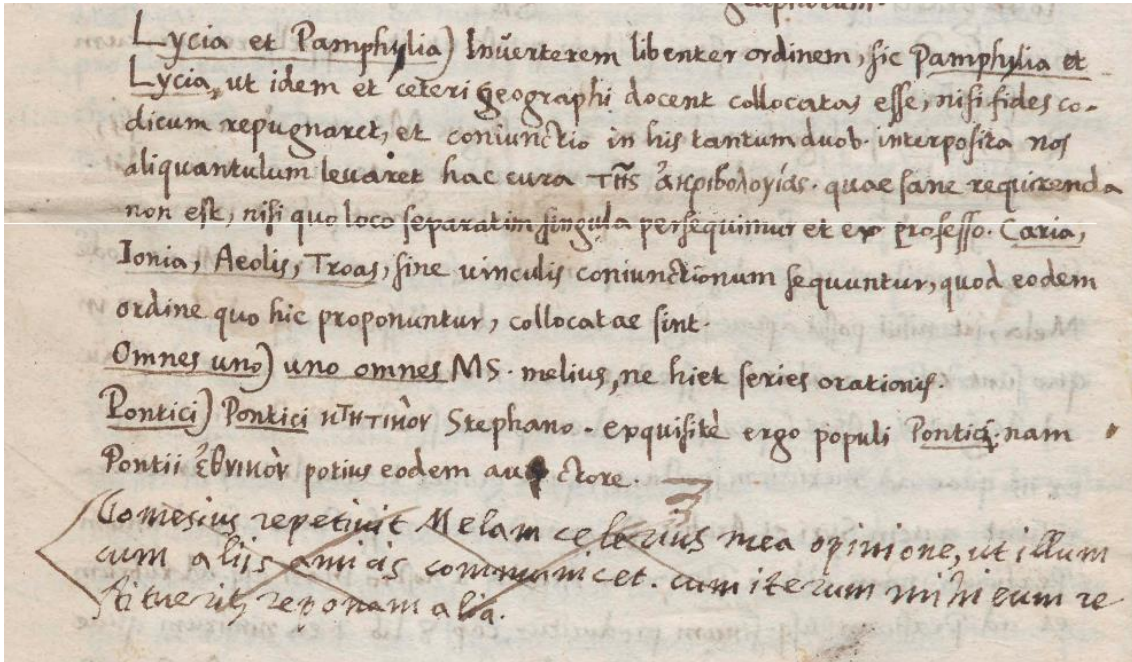 Lycia et Pamphylia) Inuerterem libenter ordinem, sic Pamphylia et
Lycia, ut idem et ceteri geographi docent collocatas esse, nisi fides co-
dicum repugnaret, et coniunctio in his tantum duob. interposita nos
aliquantulum leuaret hac cura τῆς ἀκριβολογίας. quae sane requirenda
non est, nisi quo loco separatim singula persequimur et ex professo. Caria,
Ionia, Aeolis, Troas, sine uinculis coniunctionum sequuntur, quod eodem
ordine quo hic proponuntur, collocatae sint.
Omnes uno) uno omnes MS. melius, ne hiet series orationis.
Pontici) Pontici κτητικὸν Stephano. exquisitè ergo populi Pontici. nam
Pontii ἐθνικὸν potius eodem auctore.
Gomesius repetiuit Melam celerius mea opinione, ut illum
cum aliis amicis communicet. cum iterum mihi eum re
stituerit, reponam alia.